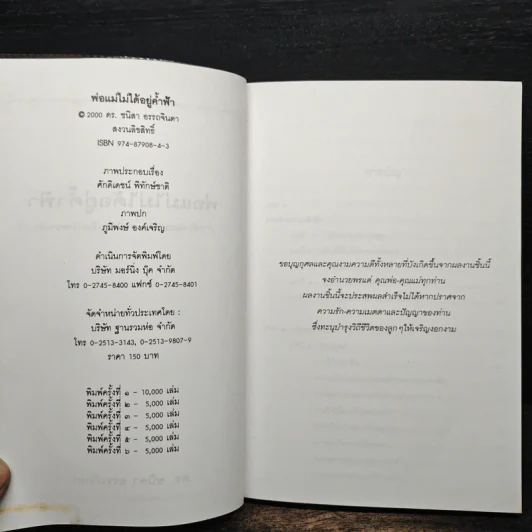 พ่อแม่ไม่ได้อยู่ค้ำฟ้า
© 2000 ดร. ชนิสา อรรถจินดา
สงวนลิขสิทธิ์
ISBN 974-87908-4-3
ภาพประกอบเรื่อง
ศักดิเดชน์ พิทักษ์ชาติ
ภาพปก
ภูมิพงษ์ องค์เจริญ
ดำเนินการจัดพิมพ์โดย
บริษัท มอร์นิ่ง บุ๊ค จำกัด
โทร 0-2745-8400 แฟกซ์ 0-2745-8401
จัดจำหน่ายทั่วประเทศโดย :
บริษัท ฐานรวมห่อ จำกัด
โทร 0-2513-3143, 0-2513-9807-9
ราคา 150 บาท
พิมพ์ครั้งที่ ๑ - 10,000 เล่ม
พิมพ์ครั้งที่ ๒ - 5,000 เล่ม
พิมพ์ครั้งที่ ๓ - 5,000 เล่ม
พิมพ์ครั้งที่ ๔ - 5,000 เล่ม
พิมพ์ครั้งที่ ๕ - 5,000 เล่ม
พิมพ์ครั้งที่ ๖ - 5,000 เล่ม
ขอบุญกุศลและคุณงามความดีทั้งหลายที่บังเกิดขึ้นจากผลงานชิ้นนี้
จงอำนวยพรแด่ คุณพ่อ-คุณแม่ทุกท่าน
ผลงานชิ้นนี้จะประสพผลสำเร็จไม่ได้หากปราศจาก
ความรัก-ความเมตตาและปัญญาของท่าน
ซึ่งทะนุบำรุงวิถีชีวิตของลูกๆให้เจริญงอกงาม